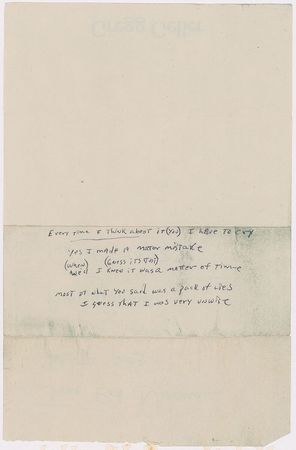 Gregg Geller
Every time I think about it (you) I have to cry
Yes I made a major mistake
(when) (Guess its
well I knew it was a matter of time
most of what you said was a pack of lies
I guess that I was very unwise